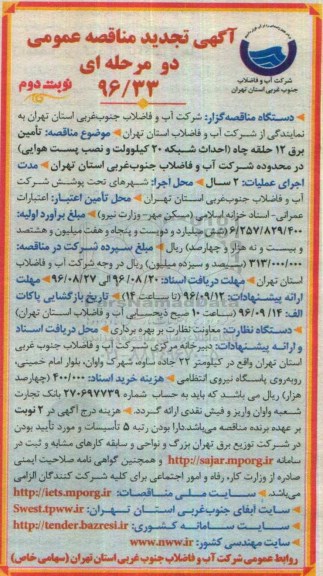 آگهی تجدید مناقصه عمومی
دو مرحله ای
۹۶/۳۳
نوبت دوم
شرکت آب و فاضلاب
جنوب غربی استان تهران
دستگاه مناقصه‌گزار: شرکت آب و فاضلاب جنوب‌غربی استان تهران به
نمایندگی از شرکت آب و فاضلاب استان تهران ◄ موضوع مناقصه: تأمین
برق ۱۲ حلقه چاه (احداث شبکه ۲۰ کیلوولت و نصب پست هوایی)
در محدوده شرکت آب و فاضلاب جنوب‌غربی استان تهران ◄ مدت
اجرای عملیات: ۲ سال ◄ محل اجرا: شهرهای تحت پوشش شرکت
آب و فاضلاب جنوب‌غربی استان تهران ◄ محل تأمین اعتبار: اعتبارات
عمرانی- اسناد خزانه اسلامی (مسکن مهر- وزارت نیرو) ◄ مبلغ برآورد اولیه:
۶/۲۵۷/۸۲۹/۴۰۰ (شش میلیارد و دویست و پنجاه و هفت میلیون و هشتصد
و بیست و نه هزار و چهارصد) ریال ◄ مبلغ سپرده شرکت در مناقصه:
۳۱۳/۰۰۰/۰۰۰ (سیصد و سیزده میلیون) ریال در وجه شرکت آب و فاضلاب
استان تهران ◄ مهلت دریافت اسناد: ۹۶/۰۸/۲۰ الی ۹۶/۰۸/۲۷ ◄ مهلت
ارائه پیشنهادات: ۹۶/۰۹/۱۲ (تا ساعت ۱۴) ◄ تاریخ بازگشایی پاکات
الف: ۹۶/۰۹/۱۴ (ساعت ۱۰ صبح ذیحسابی آب و فاضلاب استان تهران)
◄ دستگاه نظارت: معاونت نظارت بر بهره برداری ◄ محل دریافت اسناد
و ارائه پیشنهادات: دبیرخانه مرکزی شرکت آب و فاضلاب جنوب غربی
استان تهران واقع در کیلومتر ۲۲ جاده ساوه، شهرک واوان، بلوار امام خمینی،
روبه‌روی پاسگاه نیروی انتظامی ◄ هزینه خرید اسناد: ۴۰۰/۰۰۰ (چهارصد
هزار) ریال می باشد که باید به حساب شماره ۲۷۰۶۹۷۷۳۹ بانک تجارت
شعبه واوان واریز و فیش نقدی ارائه گردد ◄ هزینه درج آگهی در ۲ نوبت
بر عهده برنده مناقصه می‌باشد. دارا بودن رتبه ۵ تأسیسات و مورد تأیید بودن
در شرکت توزیع برق تهران بزرگ و نواحی و سابقه کارهای مشابه و ثبت در
سامانه http://sajar.mporg.ir و همچنین گواهی نامه صلاحیت ایمنی
صادره از وزارت کار، رفاه و امور اجتماعی برای کلیه شرکت کنندگان الزامی
می‌باشد. ◄ سایت ملی مناقصات: http://iets.mporg.ir
◄ سایت آبفای جنوب‌غربی استان تهران: Swest.tpww.ir
◄ سایت سامانه کشوری: http://tender.bazresi.ir
◄ سایت مهندسی کشور: www.nww.ir
روابط عمومی شرکت آب و فاضلاب جنوب غربی استان تهران (سهامی خاص)